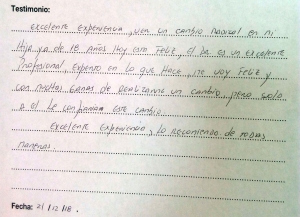 Testimonio:
Excelente Experiencia, ven un cambio Radical en mi
Hija ya de 18 Años Hoy esta Feliz el Dr. es un excelente
Profesional, Experto en lo que Hace, me voy Feliz y
con muchas Ganas de Realizarme un cambio, pero solo
a el le confiaria este cambio.
Excelente Experiencia, lo Recomiendo de todas
maneras.
Fecha: 21/12/18.